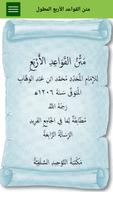 متن القواعد الأربع المطول
مَتْنُ القَوَاعِدِ الأَرْبَعِ
لِلإِمَامِ المُجَدِّدِ مُحَمَّدِ بْنِ عَبْدِ الوَهَّابِ
المُتَوَفَّى سَنَةَ ١٢٠٦هـ
رَحِمَهُ اللهُ
مُطَابِقَةٌ لِمَا فِي الجَامِعِ الفَرِيدِ
الرِّسَالَةُ الرَّابِعَةُ
مَكْتَبَةُ التَّوْحِيدِ السَّلَفِيَّةُ